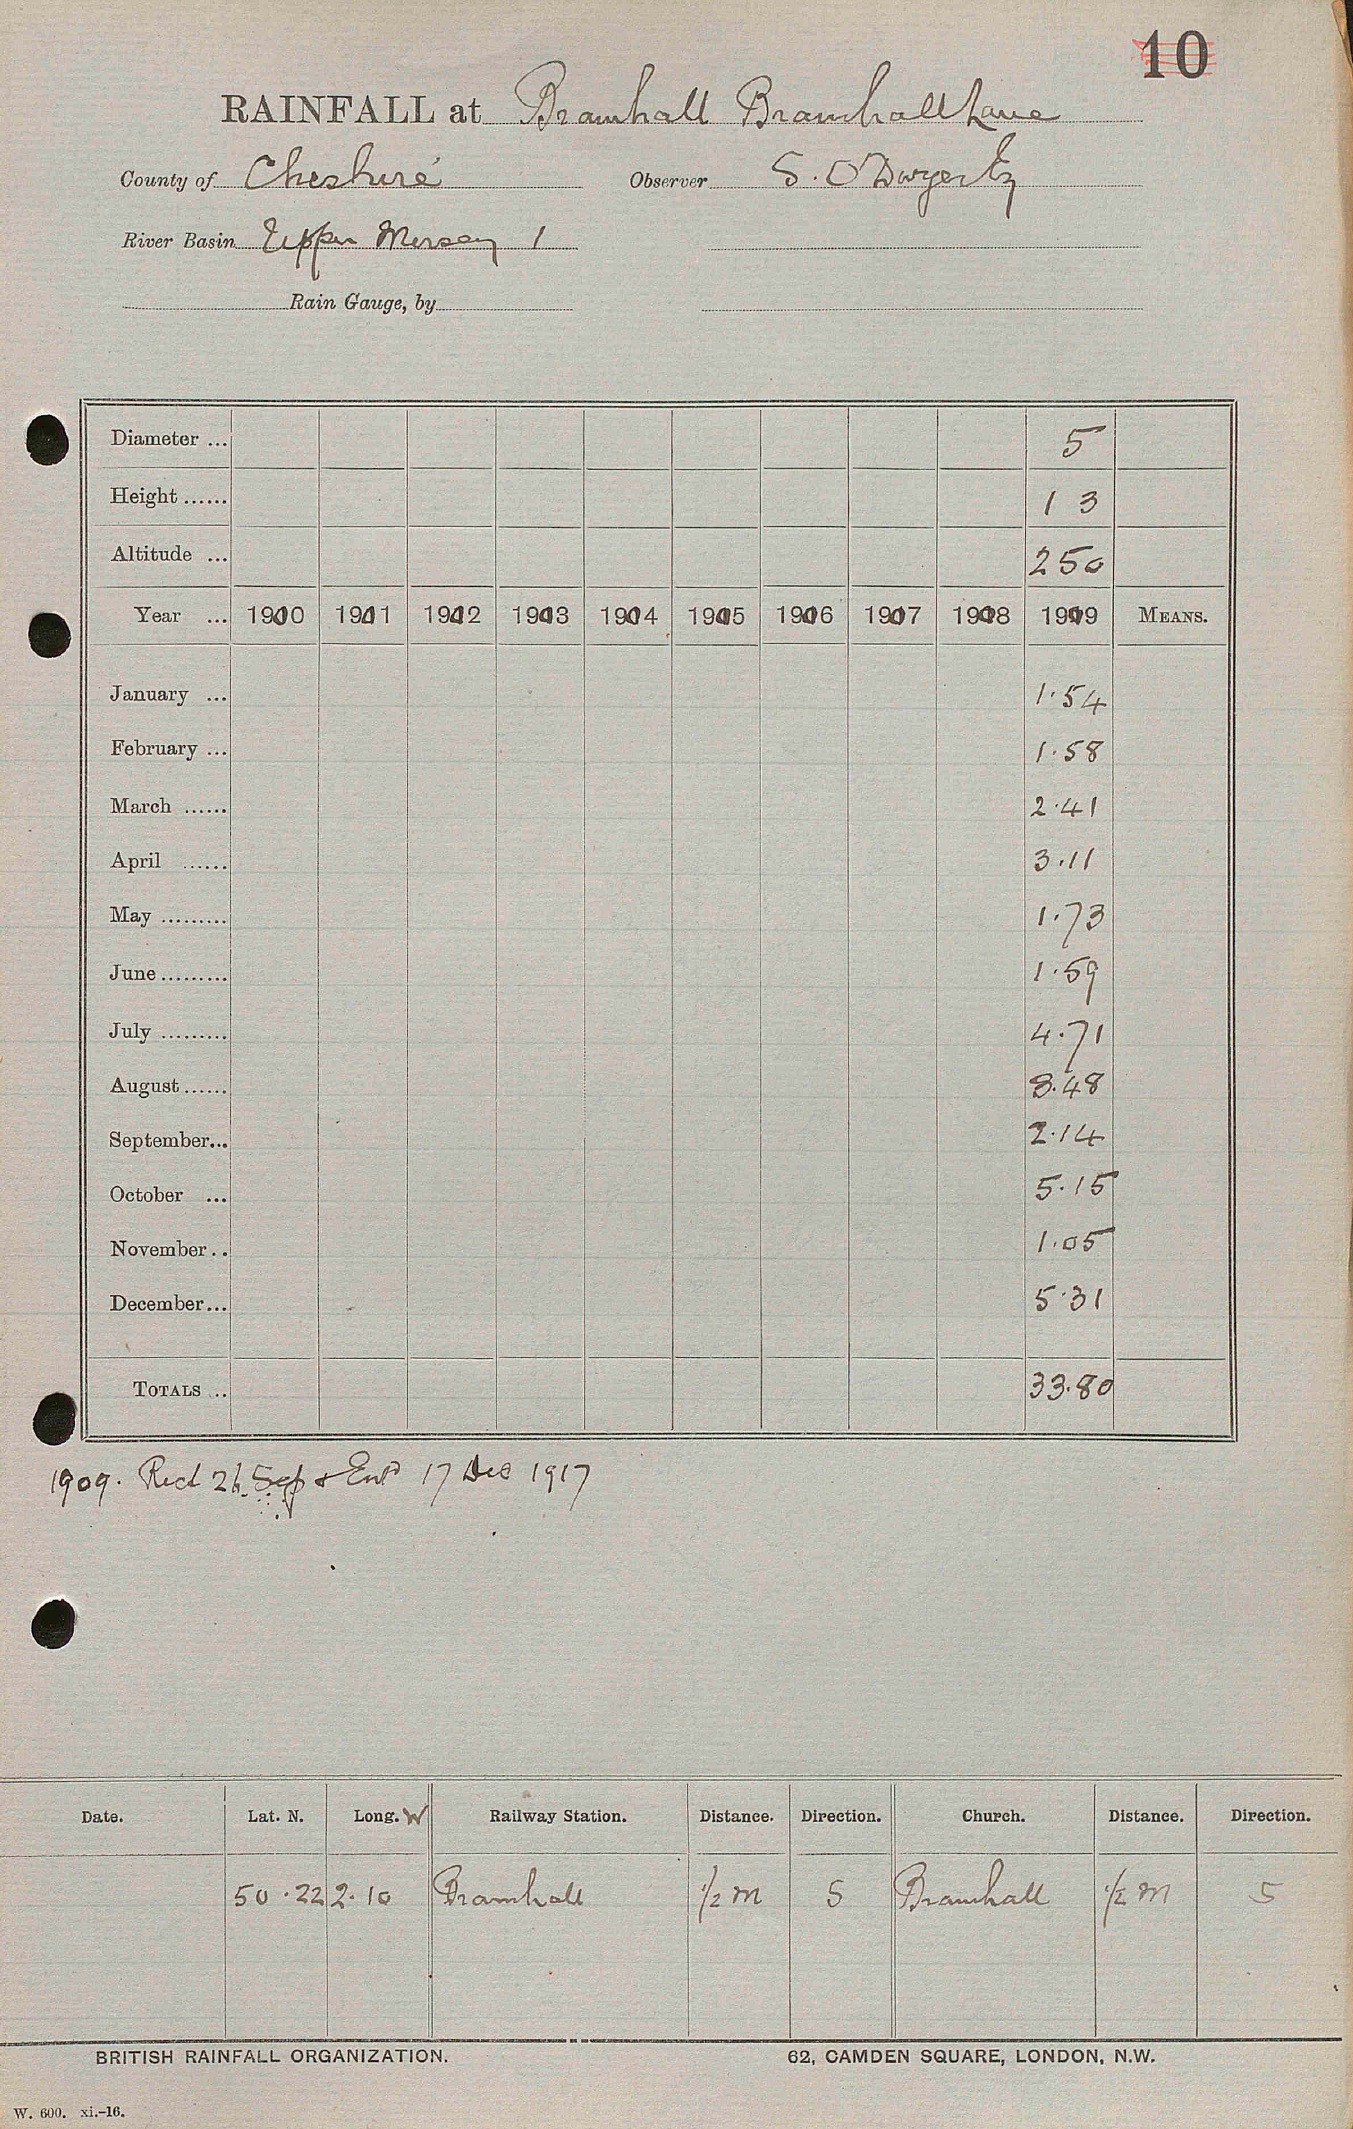 10
RAINFALL at Bramhall Bramhall Lane
County of Cheshire Observer S. O'Dwyer Esq
River Basin Upper Mersey 1
Rain Gauge, by
Diameter ... 5
Height ...... 1 3
Altitude ... 250
Year ... 1900 1901 1902 1903 1904 1905 1906 1907 1908 1909 MEANS.
January ... 1.54
February ... 1.58
March ...... 2.41
April ...... 3.11
May ......... 1.73
June ......... 1.59
July ......... 4.71
August ...... 3.48
September... 2.14
October ... 5.15
November .. 1.05
December... 5.31
TOTALS .. 33.80
1909. Recd 26 Sep & Entd 17 Dec 1917
Date. Lat. N. Long. W Railway Station. Distance. Direction. Church. Distance. Direction.
50.22 2.10 Bramhall 1/2 M S Bramhall 1/2 M S
BRITISH RAINFALL ORGANIZATION. 62, CAMDEN SQUARE, LONDON, N.W.
W. 600. xi.-16.